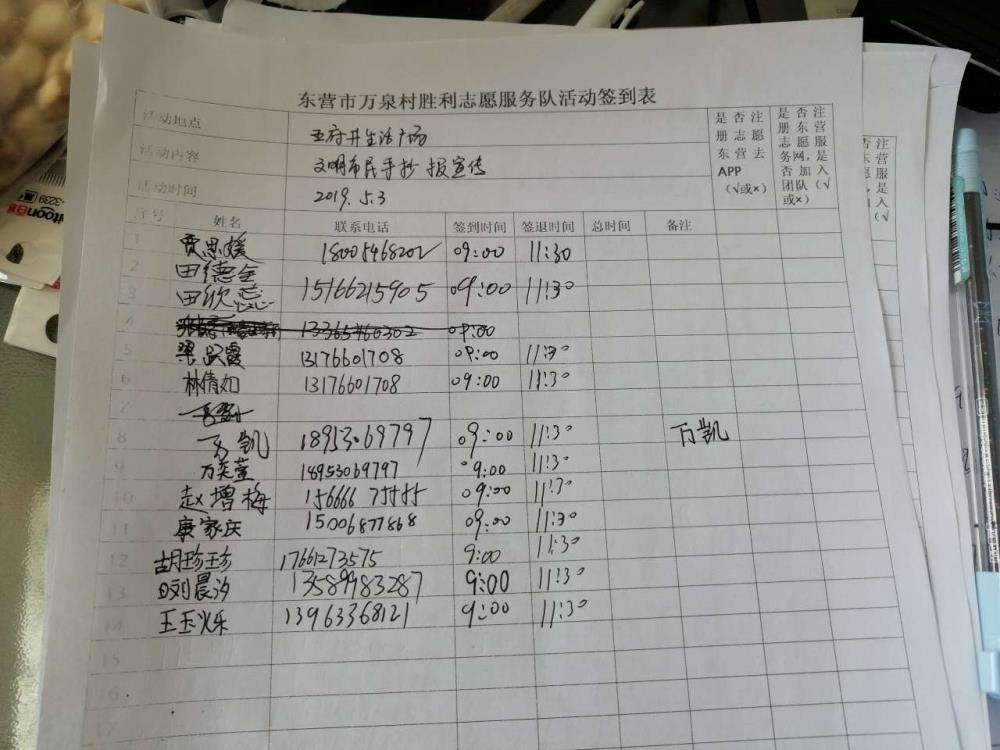 东营市万泉村胜利志愿服务队活动签到表
活动地点 王府井生活广场
活动内容 文明市民手抄报宣传
活动时间 2019.5.3
是否注册志愿东营去APP(√或×)
是否注册东营志愿服务网,是否加入团队(√或×)
序号 姓名 联系电话 签到时间 签退时间 总时间 备注
1 贾思媛 18005468202 09:00 11:30
2 田德全
3 田欣蕊 15166215905 09:00 11:30
4 13365460302 09:00
5 梁跃霞 13176601708 09:00 11:30
6 林倩如 13176601708 09:00 11:30
7
8 万凯 18953069797 09:00 11:30 万凯
9 万奕萱 18953069797 09:00 11:30
10 赵增梅 15666675555 09:00 11:30
11 康家庆 15006877868 09:00 11:30
12 胡珍珍 17661273575 9:00 11:30
13 刘晨汐 13589983287 9:00 11:30
14 王玉乐 13963368121 9:00 11:30
15
16
17